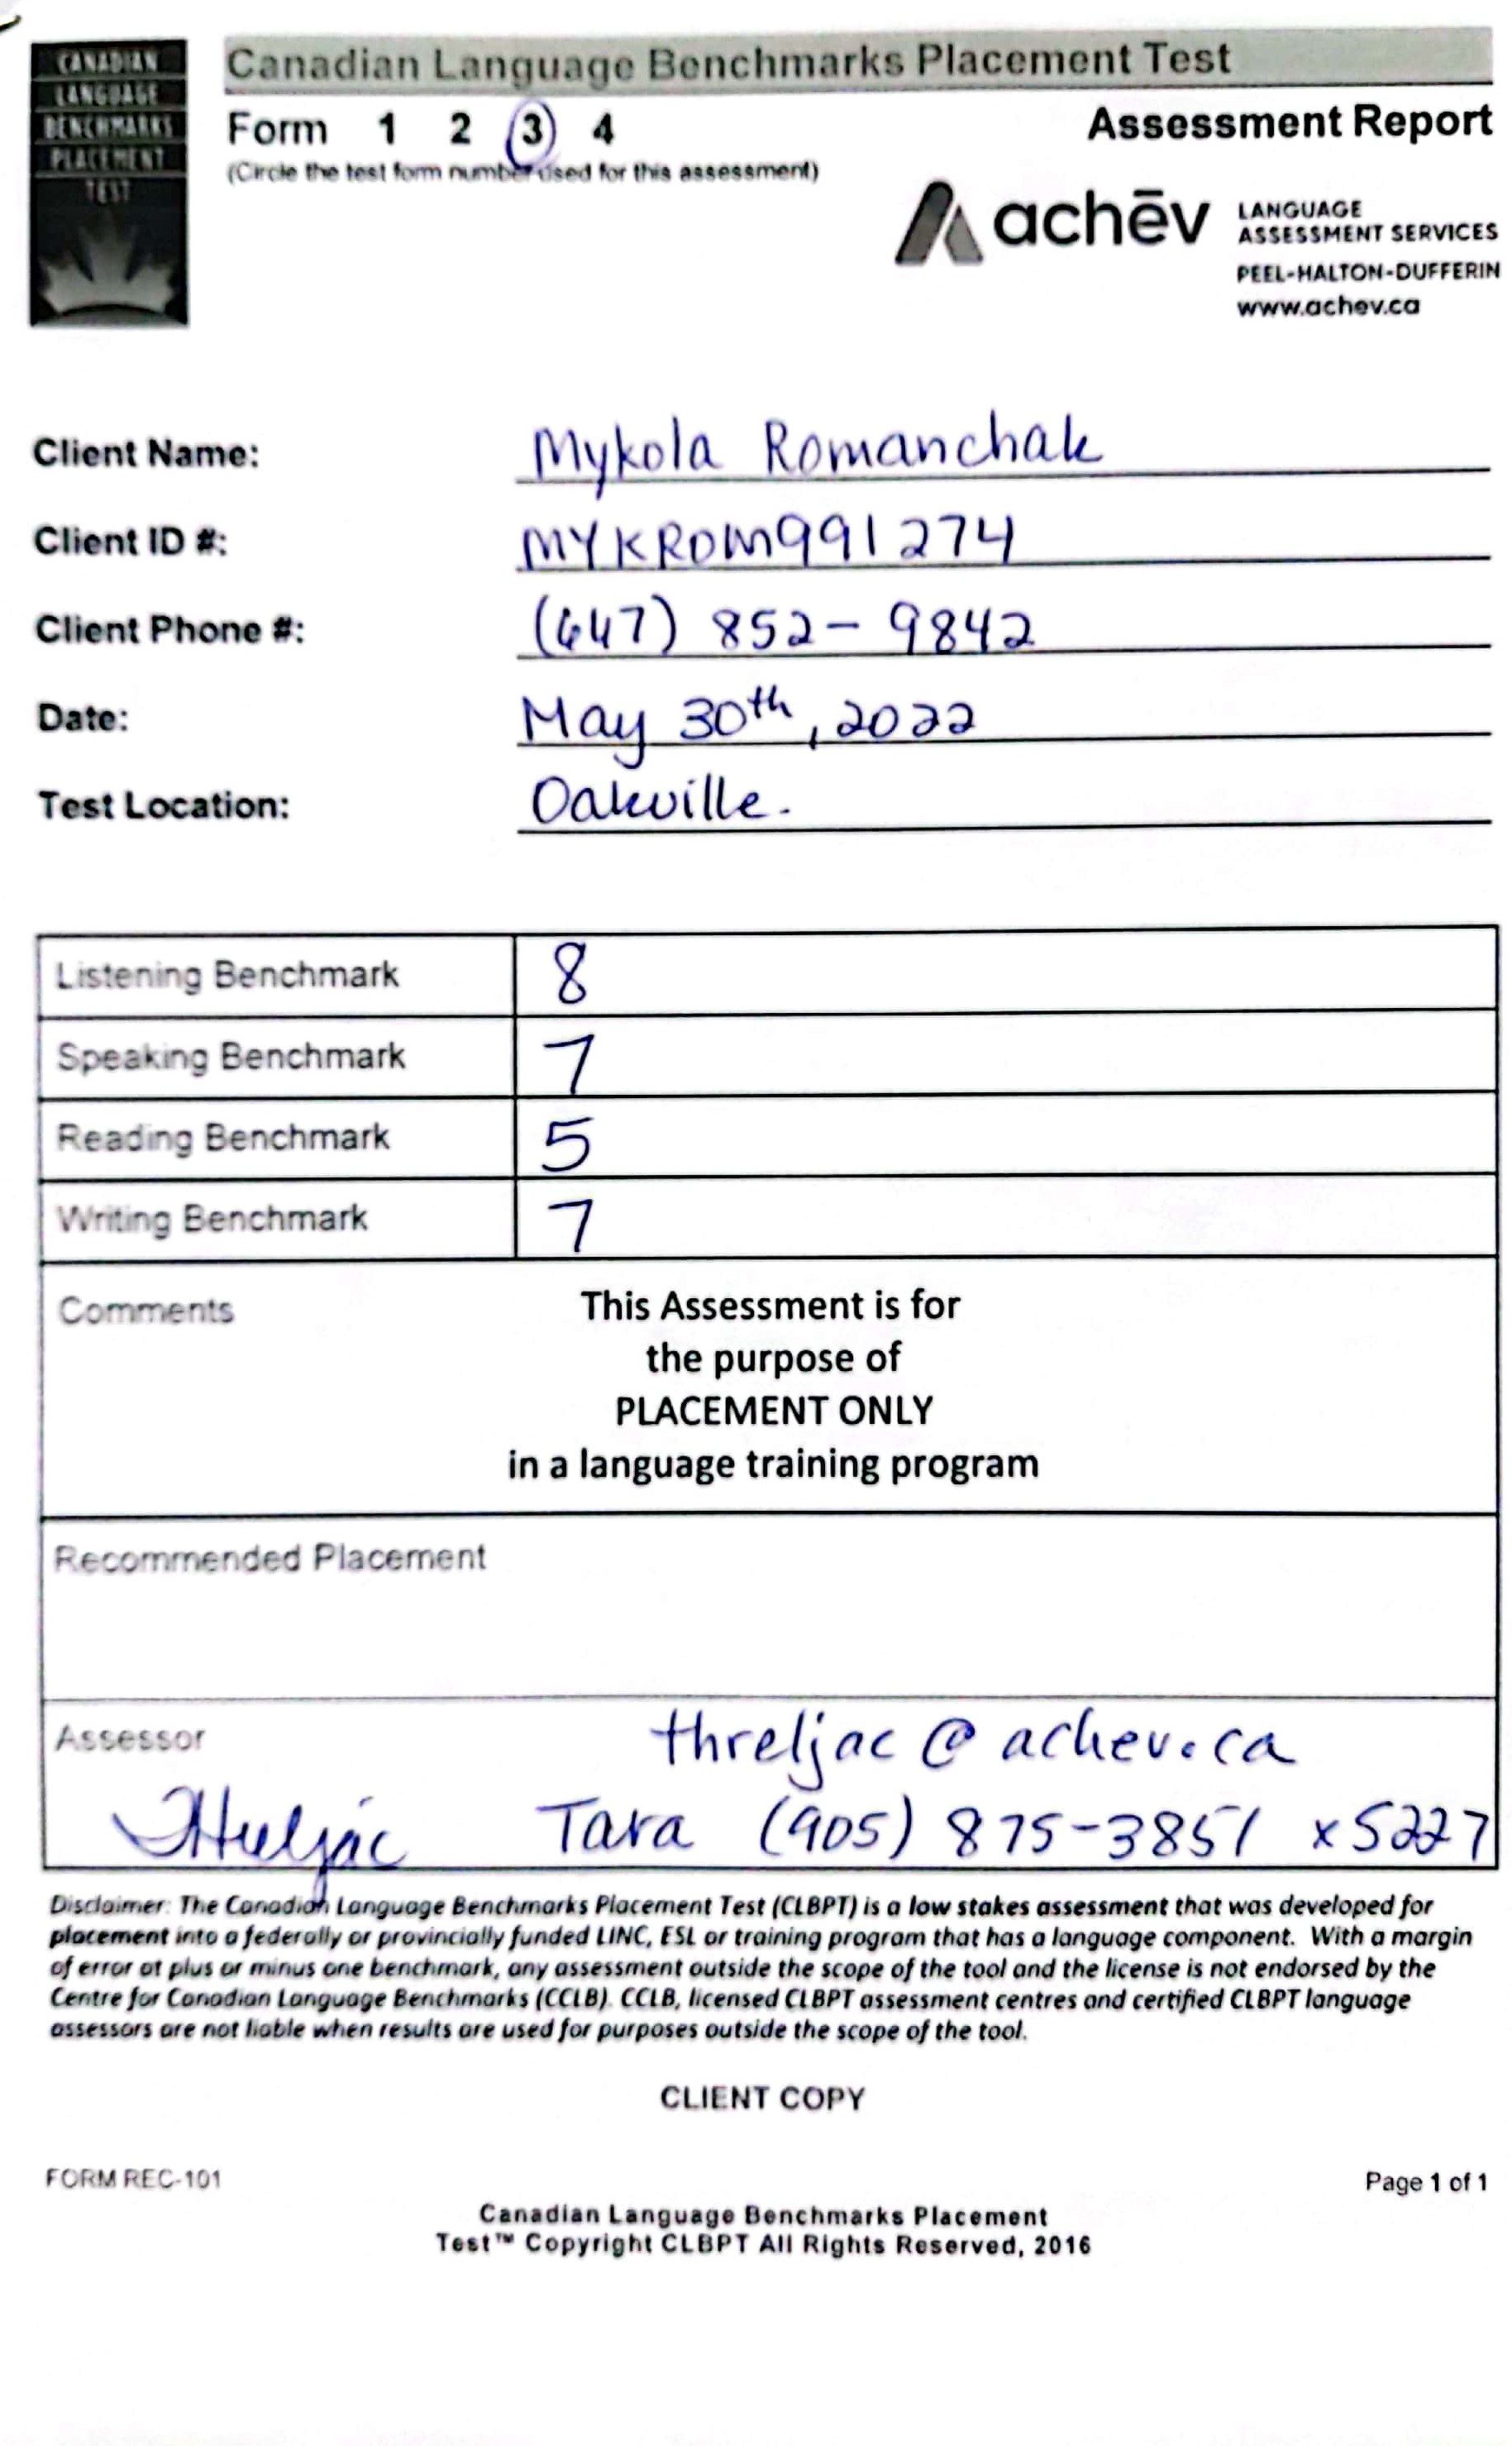 CANADIAN
LANGUAGE
BENCHMARKS
PLACEMENT
TEST
Canadian Language Benchmarks Placement Test
Form 1 2 3 4
(Circle the test form number used for this assessment)
Assessment Report
achēv
LANGUAGE
ASSESSMENT SERVICES
PEEL-HALTON-DUFFERIN
www.achev.ca
Client Name: Mykola Romanchak
Client ID #: MYKROM991274
Client Phone #: (647) 852-9842
Date: May 30th, 2022
Test Location: Oakville.
Listening Benchmark 8
Speaking Benchmark 7
Reading Benchmark 5
Writing Benchmark 7
Comments This Assessment is for
the purpose of
PLACEMENT ONLY
in a language training program
Recommended Placement
Assessor threljac@achev.ca
THreljac Tara (905) 875-3851 x5227
Disclaimer: The Canadian Language Benchmarks Placement Test (CLBPT) is a low stakes assessment that was developed for
placement into a federally or provincially funded LINC, ESL or training program that has a language component. With a margin
of error at plus or minus one benchmark, any assessment outside the scope of the tool and the license is not endorsed by the
Centre for Canadian Language Benchmarks (CCLB). CCLB, licensed CLBPT assessment centres and certified CLBPT language
assessors are not liable when results are used for purposes outside the scope of the tool.
CLIENT COPY
FORM REC-101
Page 1 of 1
Canadian Language Benchmarks Placement
Test™ Copyright CLBPT All Rights Reserved, 2016